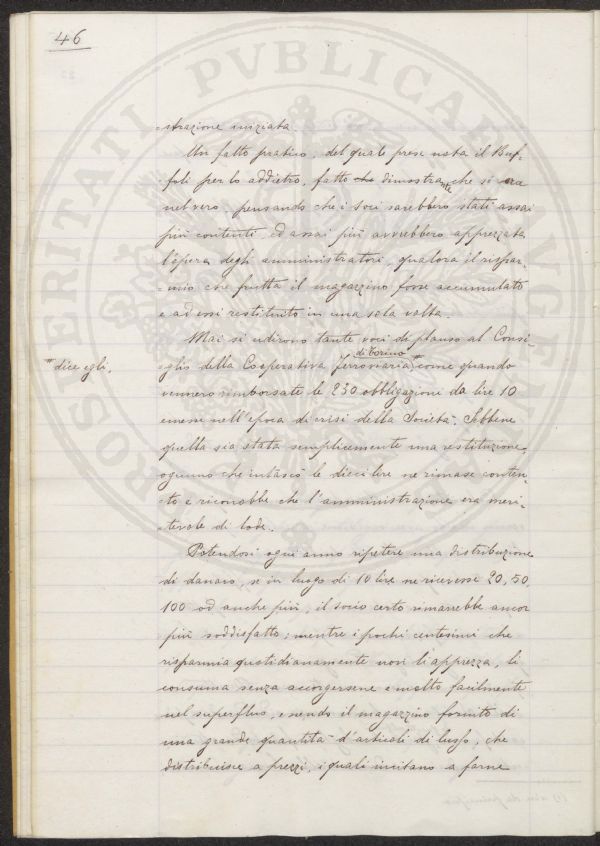 46
PROSPERITATI PVBLICAE AVGENDAE
-strazione iniziata.
Un fatto pratico, del quale prese nota il Buf-
foli per lo addietro, fatto che dimostrante che si era
nel vero, pensando che i soci sarebbero stati assai
più contenti ed assai più avrebbero apprezzata
l'opera degli amministratori, qualora il rispar-
-mio che frutta il magazzino fosse accumulato
e ad essi restituito in una sola volta.
Mai si udirono tante voci di plauso al Consi-
di Torino
glio della Cooperativa Ferroviaria * come quando
* dice egli,
vennero rimborsate le 230 obbligazioni da lire 10
emesse nell'epoca di crisi della Società. Sebbene
quella sia stata semplicemente una restituzione,
ognuno che intascò le dieci lire ne rimase conten-
-to e riconobbe che l'amministrazione era meri-
-tevole di lode.
Potendosi ogni anno ripetere una distribuzione
di danaro, se in luogo di 10 lire ne ricevesse 20, 50,
100 od anche più, il socio certo rimarrebbe ancor
più soddisfatto; mentre i pochi centesimi che
risparmia quotidianamente non li apprezza, li
consuma senza accorgersene e molto facilmente
nel superfluo, essendo il magazzino fornito di
una grande quantità d'articoli di lusso, che
distribuisce a prezzi, i quali incitano a farne